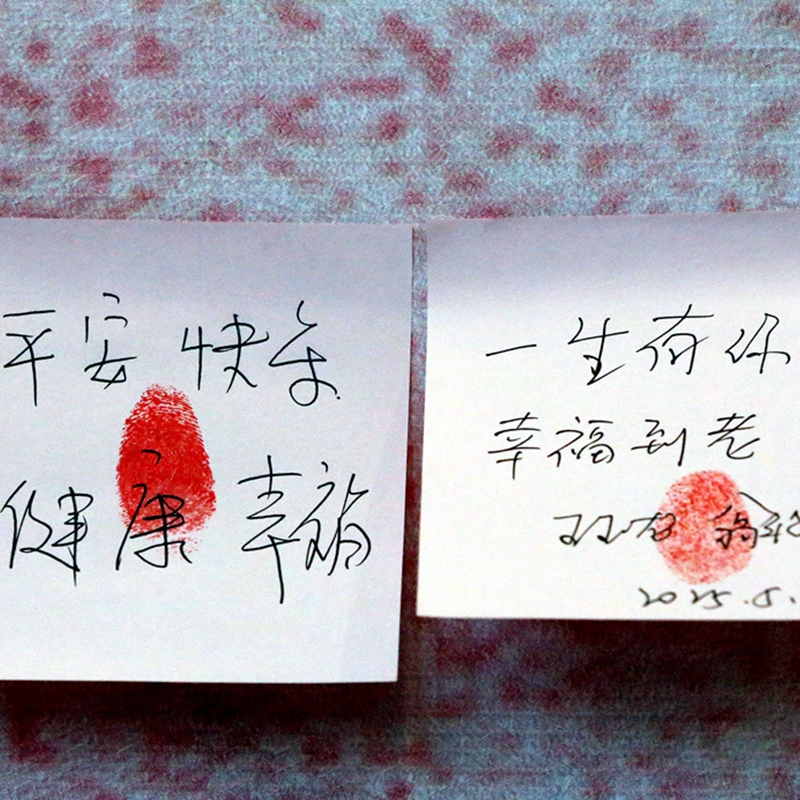 平安快乐
健康幸福
一生有你
幸福到老
2025.5.